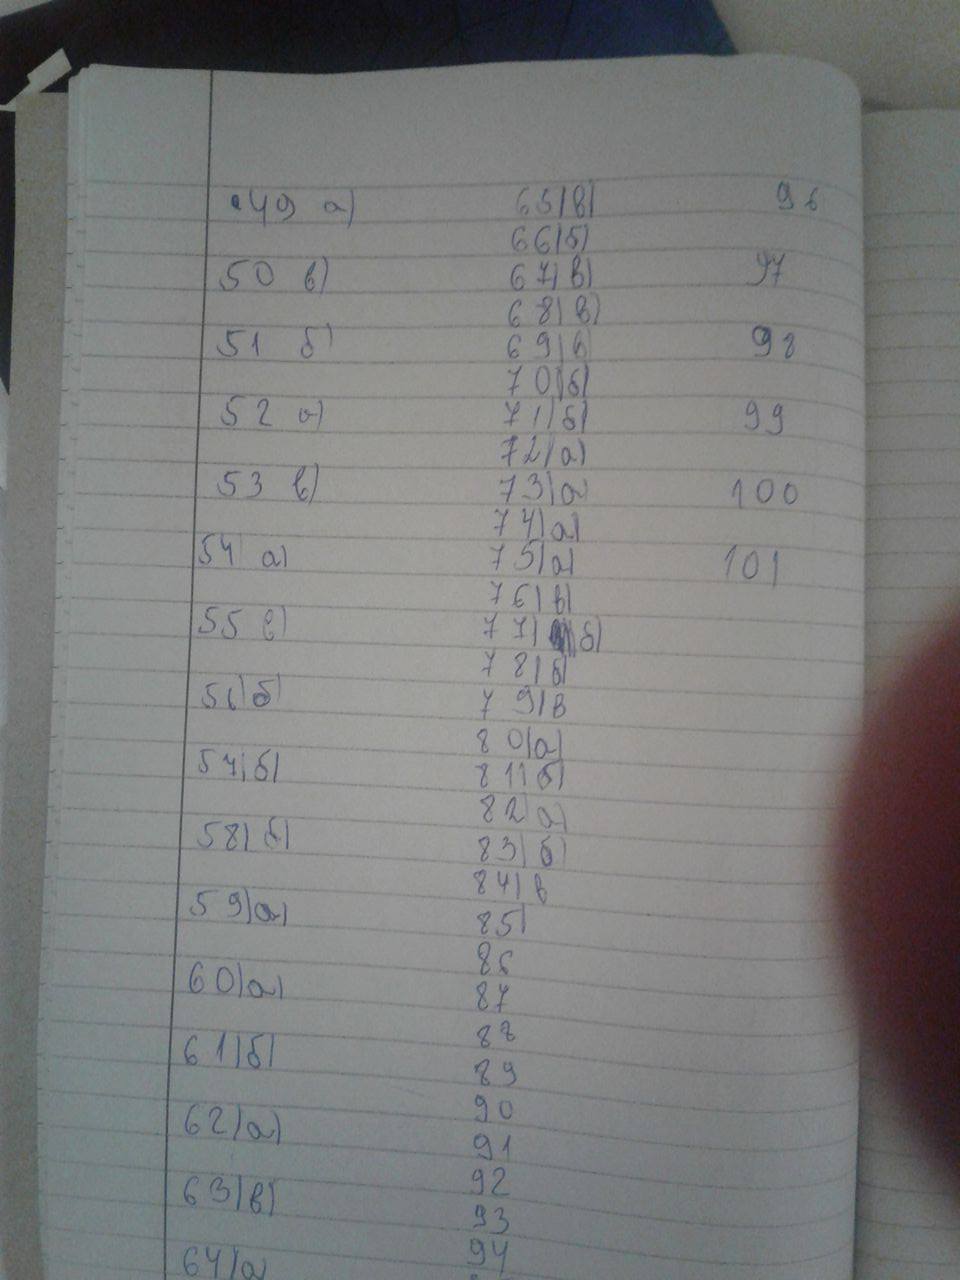 49 а)
50 в)
51 б)
52 а)
53 в)
54) а)
55 в)
56) б)
57) б)
58) б)
59) а)
60) а)
61) б)
62) а)
63) в)
64) а
65) в)
66) б)
67) в)
68) в)
69) в
70) б)
71) б)
72) а)
73) а
74) а)
75) а)
76) в)
77) б)
78) б
79) в
80) а)
81) б)
82) а)
83) б)
84) в
85)
86
87
88
89
90
91
92
93
94
96
97
98
99
100
101